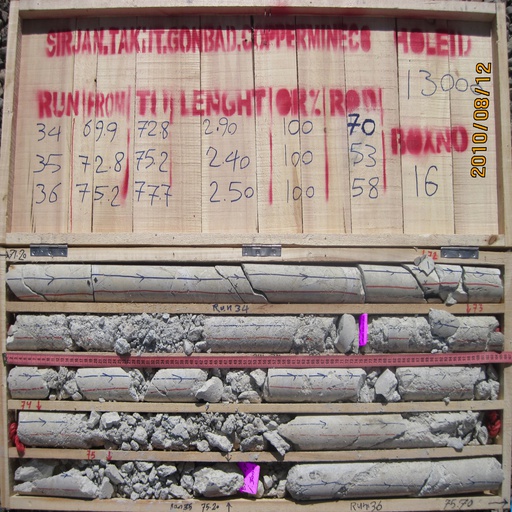 SIRJAN.TAKHT.GONBAD.COPPERMINECO HOLEID
1300
RUN FROM TU LENGHT CR% RQD
34 69.9 72.8 2.90 100 70
35 72.8 75.2 2.40 100 53
36 75.2 77.7 2.50 100 58
BOXNO
16
2010/08/12
Run 34
74
75
75.20
Run 36
75.70